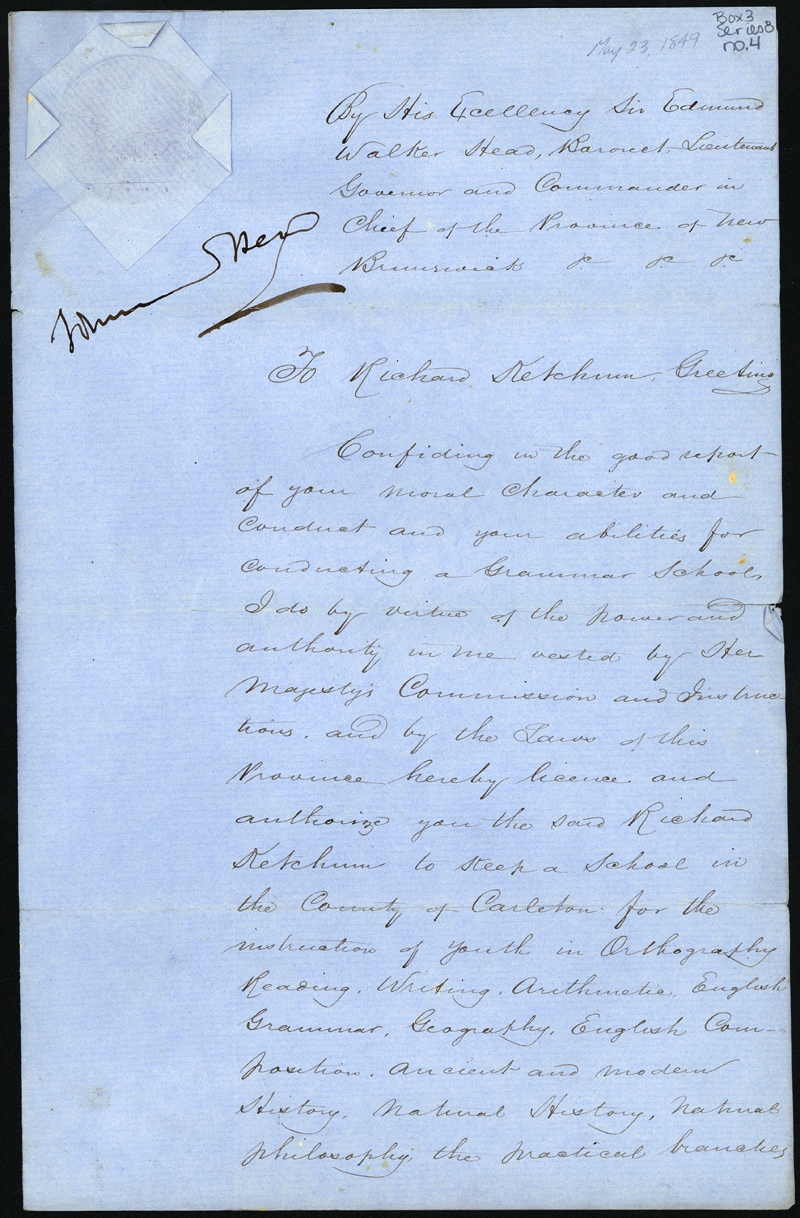 Box 3
Series B
no. 4
May 23, 1849
By His Excellency Sir Edmund
Walker Head, Baronet Lieutenant
Governor and Commander in
Chief of the Province of New
Brunswick &c &c &c
Head
To Richard Ketchum, Greeting
Confiding in the good report
of your moral Character and
Conduct and your abilities for
conducting a Grammar School,
I do by virtue of the power and
authority in me vested by Her
Majesty's Commission and Instruc
tions, and by the Laws of this
Province hereby licence and
authorize you the said Richard
Ketchum to keep a School in
the County of Carleton for the
instruction of Youth in Orthography
Reading, Writing, Arithmetic, English
Grammar, Geography, English Com-
position, Ancient and modern
History, Natural History, Natural
philosophy, the practical branches